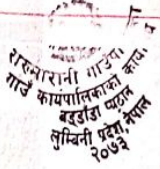 सरुमारानी गाउँपा.
गाउँ कार्यपालिकाको कार्या.
बडडाँडा प्यूठान
लुम्बिनी प्रदेश, नेपाल
२०७३